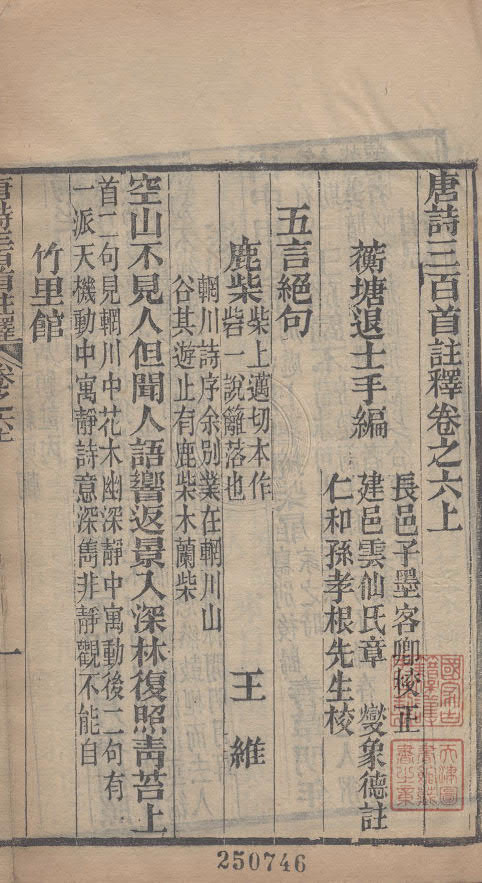 唐詩三百首註釋卷之六上
蘅塘退士手編
長邑子墨客卿挍正
建邑雲仙氏章燮象德註
仁和孫孝根先生校
五言絕句
鹿柴 柴上邁切本作
砦一說籬落也
王維
輞川詩序余別業在輞川山
谷其遊止有鹿柴木蘭柴
空山不見人但聞人語響返景入深林復照靑苔上
首二句見輞川中花木幽深靜中寓動後二句有
一派天機動中寓靜詩意深雋非靜觀不能自
竹里館
唐詩三百首註釋 卷之六上
一
250746